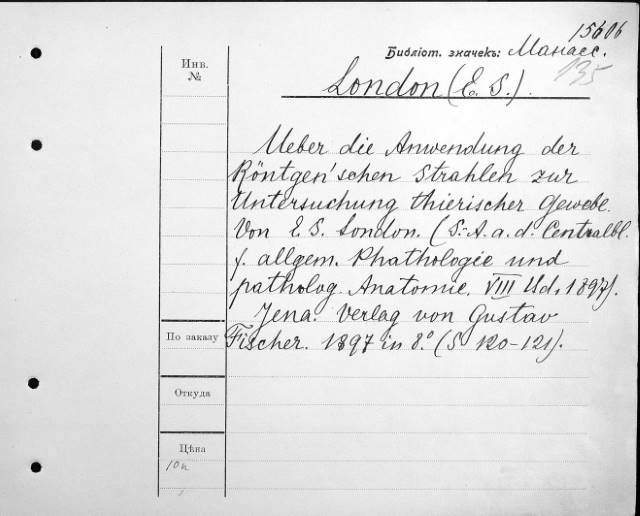 15606
Библіот. значекъ: Манасс.
135
London (E. S.).
Инв.
№
Ueber die Anwendung der
Röntgen'schen Strahlen zur
Untersuchung thierischer Gewebe.
Von E. S. London. (S.-A. a. d. Centralbl.
f. allgem. Phathologie und
patholog. Anatomie. VIII Bd. 1897).
Jena. Verlag von Gustav
Fischer. 1897 in 8.° (S. 120-121).
По заказу
Откуда
Цѣна
10к